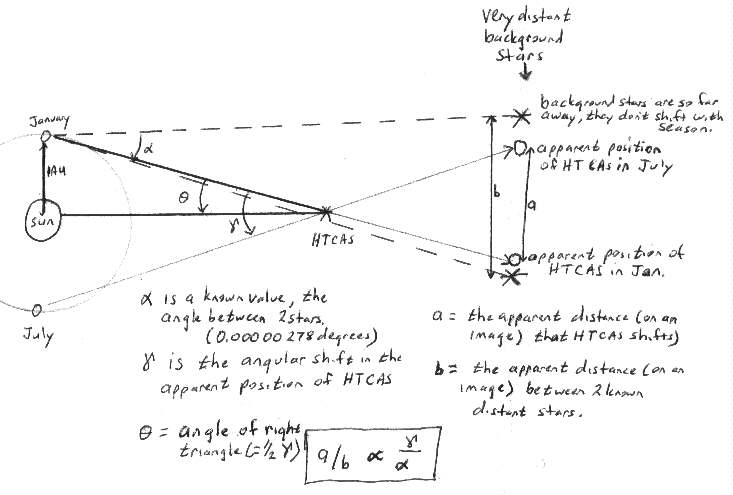 very distant
background
stars
background stars are so far
away, they don't shift with
season.
January
α
apparent position
of HT CAS in July
1AU
θ
b
a
sun
γ
HTCAS
apparent position of
HTCAS in Jan.
July
α is a known value, the
angle between 2 stars.
(0.00000278 degrees)
γ is the angular shift in the
apparent position of HTCAS
θ = angle of right
triangle (=1/2 γ)
a/b ∝ γ/α
a = the apparent distance (on an
image) that HTCAS shifts)
b = the apparent distance (on an
image) between 2 known
distant stars.